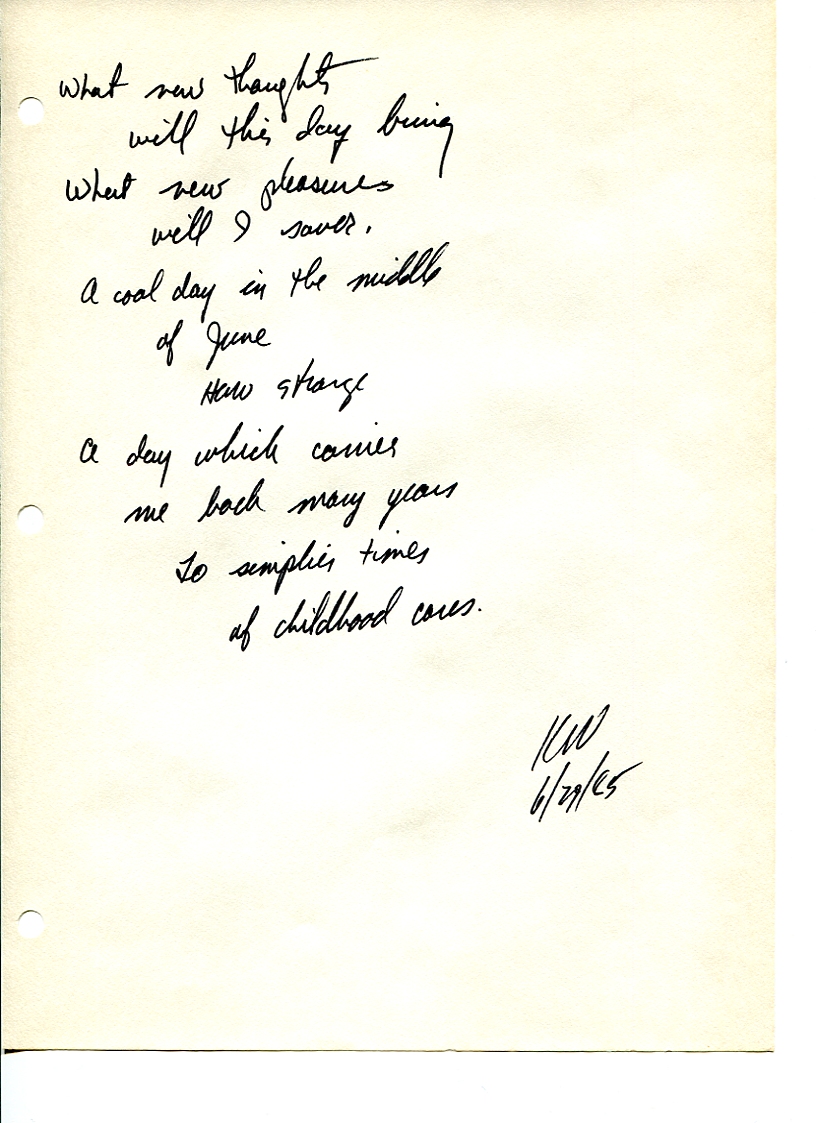 What new thoughts
will this day bring
What new pleasures
will I saver.
A cool day in the middle
of June
How strange
A day which carries
me back many years
To simplier times
of childhood cares.
KW
6/29/85